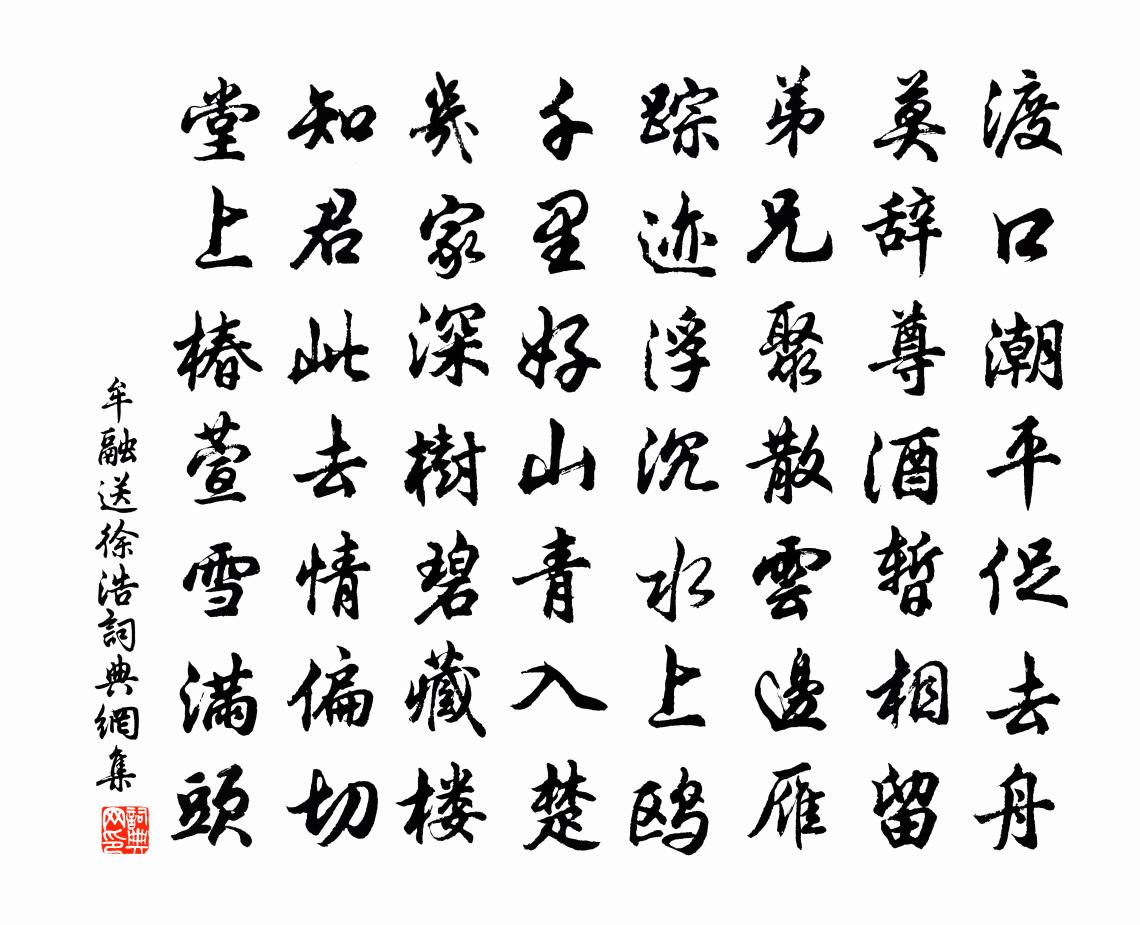 渡口潮平促去舟
莫辞尊酒暫相留
弟兄聚散雲邊雁
踪迹浮沉水上鸥
千里好山青入楚
幾家深樹碧藏楼
知君此去情偏切
堂上椿萱雪满頭
牟融送徐浩詞典網集
詞典
网印